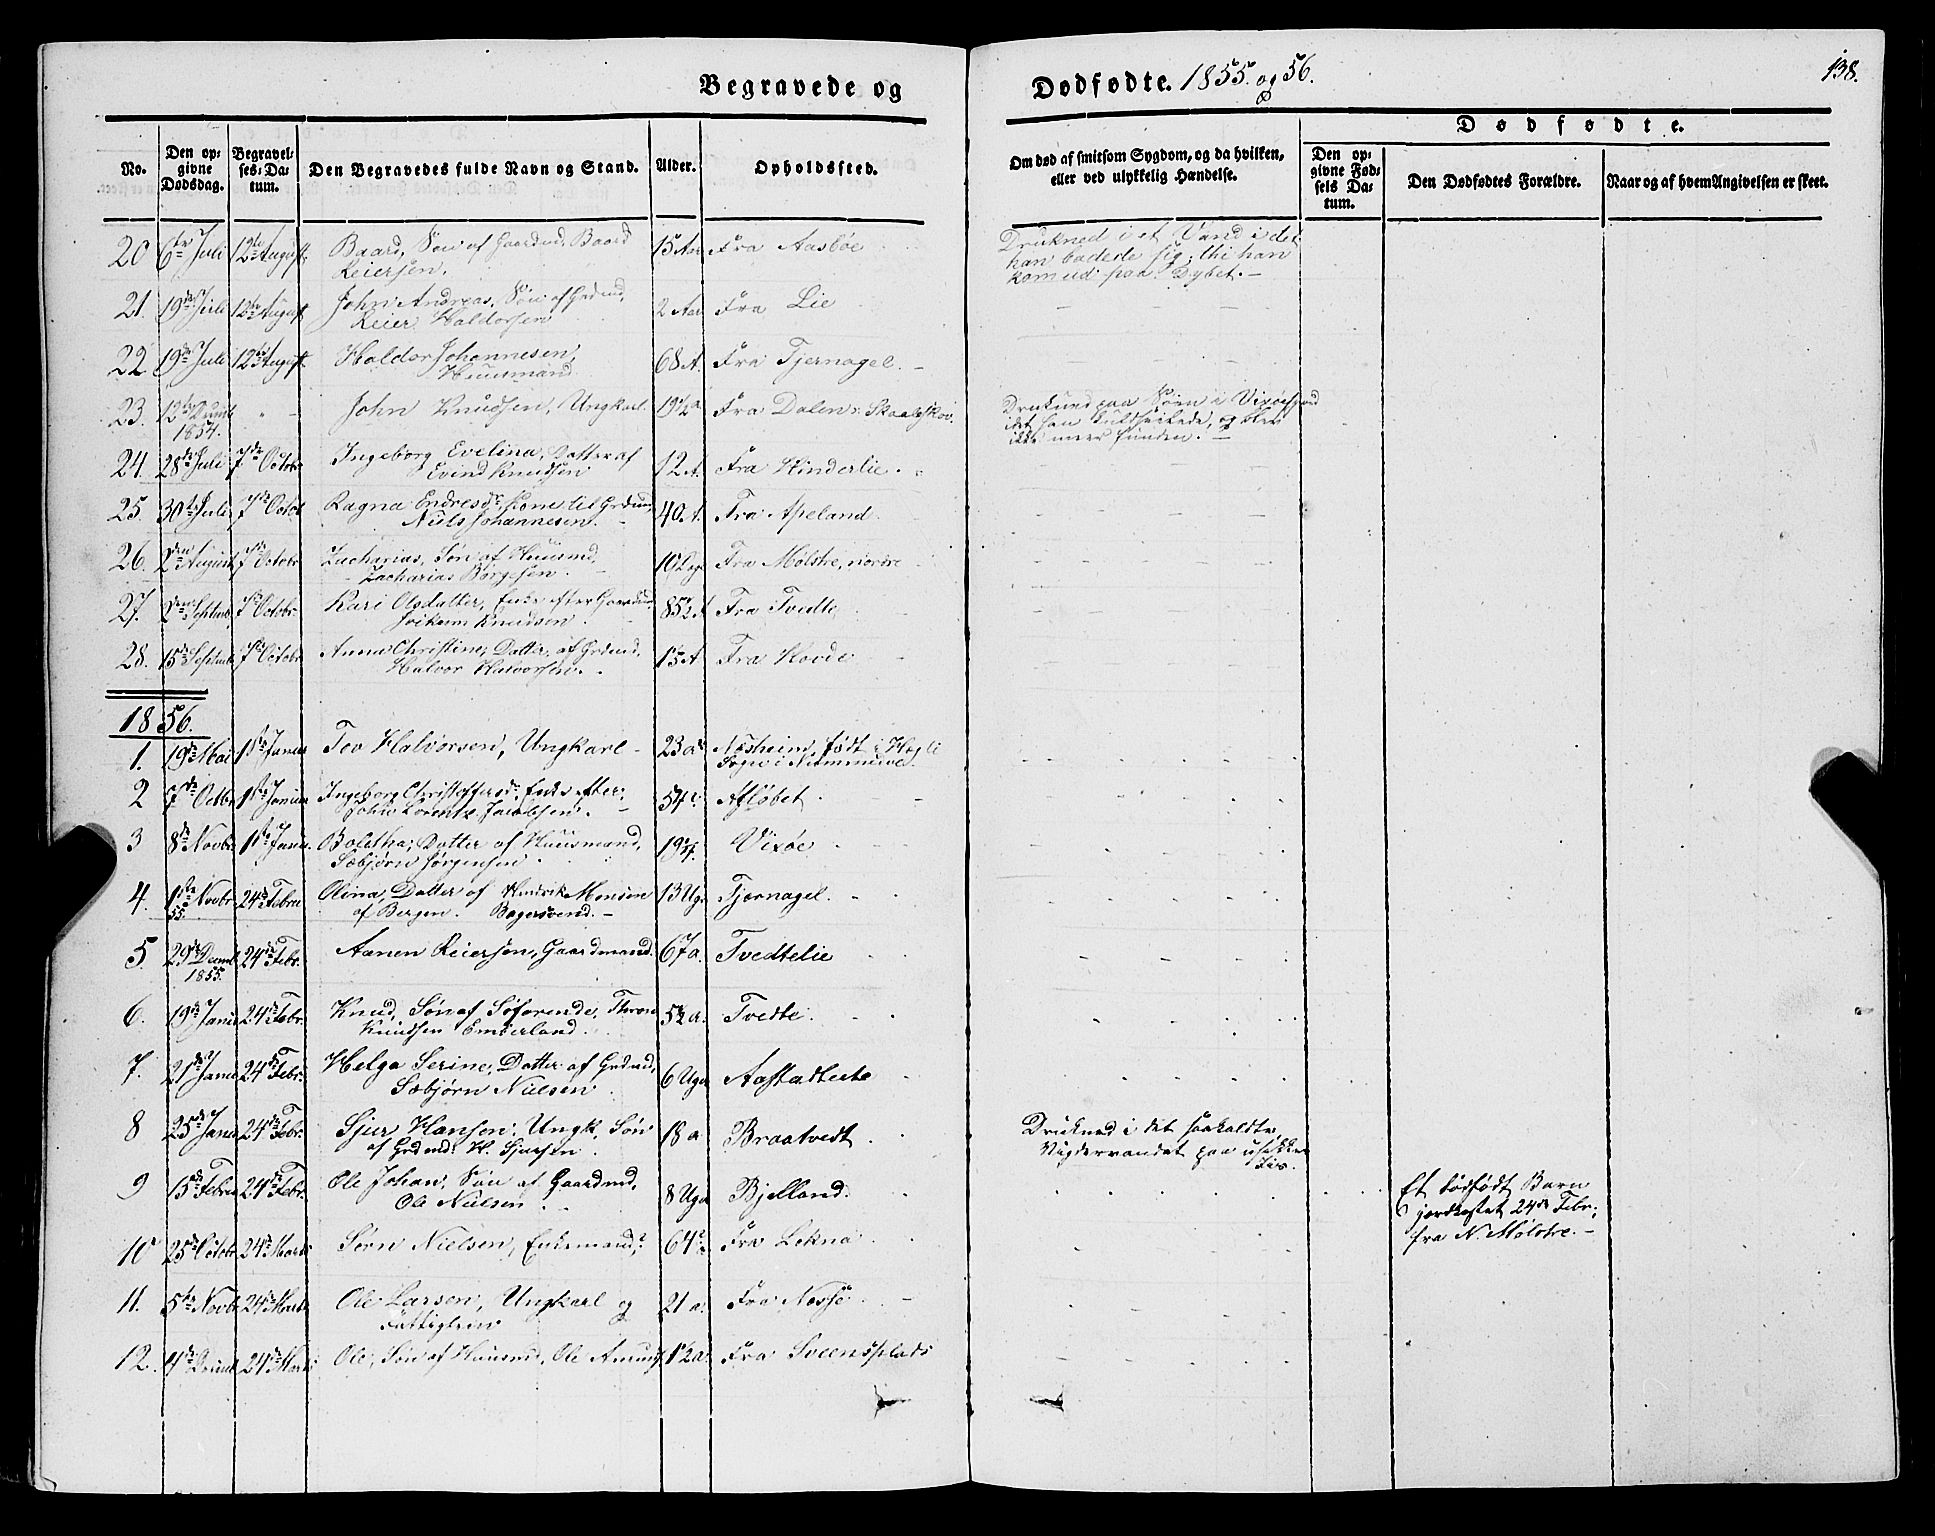 Begravede og Dødfødte. 1855. og 56.
138.
No.
Den opgivne Dødsdag.
Begravelses-Datum.
Den Begravedes fulde Navn og Stand.
Alder.
Opholdsted.
Om død af smitsom Sygdom, og da hvilken, eller ved ulykkelig Hændelse.
Dødfødte.
Den opgivne Fødsels Datum.
Den Dødfødtes Forældre.
Naar og af hvem Angivelsen er skeet.
20 6te Juli 12te August Baard, Søn af Gaardmd. Baard 15 Aar Fra Aasbøe Drukned i et Vand i det
Reiersen. han badede sig; thi han
kom ud paa Dybet. -
21. 19de Juli 12te August John Andreas, Søn af Grdmd. 2 Aar Fra Lie
Reier Haldorsen
22 19de Juli 12te August Haldor Johannesen, 68 A. Fra Tjernagel. -
Huusmand
23. 12te Decmb " - John Knudsen, Ungkarl. 19½ a Fra Dalen i Skaalskov. Drukned paa Søen i Vixøefjord
1854. idet han kuldseilede, og blev
ikke meer funden. -
24. 28de Juli 7de Octobr Ingeborg Evelina, Datter af 12 A. Fra Hinderlie. "
Evind Knudsen
25. 30te Juli 7de Octob Ragna Endresdr. Kone til Grdmd. 40 A. Fra Apeland.
Niels Johannesen. -
26. 2den August 7de Octobr Zacharias, Søn af Huusmd. 10 Dage Fra Mølstre, nordre -
- Zacharias Børgesen. -
27. 2den Septmb. 7de Octobr. Kari Olsdatter, Enke efter Gaardmd. 85½ A Fra Tvedte
Knudsen.
28. 15de Septmb 7de Octobr Anna Christine, Datter af Grdmd. 13 A Fra Hovde -
Halvor Halvorsen. -
1856.
1. 19de Mai 1ste Januar Tov Halvorsen, Ungkarl - 23 aar Næsheim, født i
Sogn i Nummedal.
2 7de Octbr 1ste Januar Ingeborg Christoffersdr. Enke efter 54 Afløbet. - -
John Lorentz Jacobsen. -
3 8de Novbr 1ste Janu. Boletha, Datter af Huusmand. 19 Vixøe
Sæbjørn Jørgensen
4. 1ste Novbr 24de Febru Olina, Datter af Hendrik Monsen 13 Uger Tjernagel. -
55. af Bergen. Bagersvend. -
5. 29de Decmb 24de Febr. Aanen Reiersen, Gaardmand. 67 a. Tvedtelie
1855.
6. 19de Janua 24de Febr. Knud, Søn af Søfarende, Thron 5½ a. Tvedte.
Knudsen Emberland.
7. 21de Janua 24de Febr. Helga Serine, Datter af Grdmd. 6 Uger
Sæbjørn Nielsen
8 25de Janua 24de Febr. Sjur Hansen. Ungk. Søn 18 a Braatvedt Druknet i det saakaldte
af Grdmd. H. Sjursen. Vigdervandet paa usikker
Iis.
9 15de Febru 24de Febr. Ole Johan, Søn af Gaardmd. 8 Uger Bjelland. Et dødfødt Barn
Ole Nielsen jordkastet 24de Febr.
fra N. Mølstre. -
10 25de Octobr 24de Marts Sørn Nielsen, Enkemand, 64 Fra Lekna
11. 5te Novbr 24de Marts Ole Larsen, Ungkarl og 21 a. Fra Næsse
Fattiglem
12. 4de Decmb 24de Marts Ole, Søn af Huusmd. Ole Amunds. 12 a. Fra Sveensplads